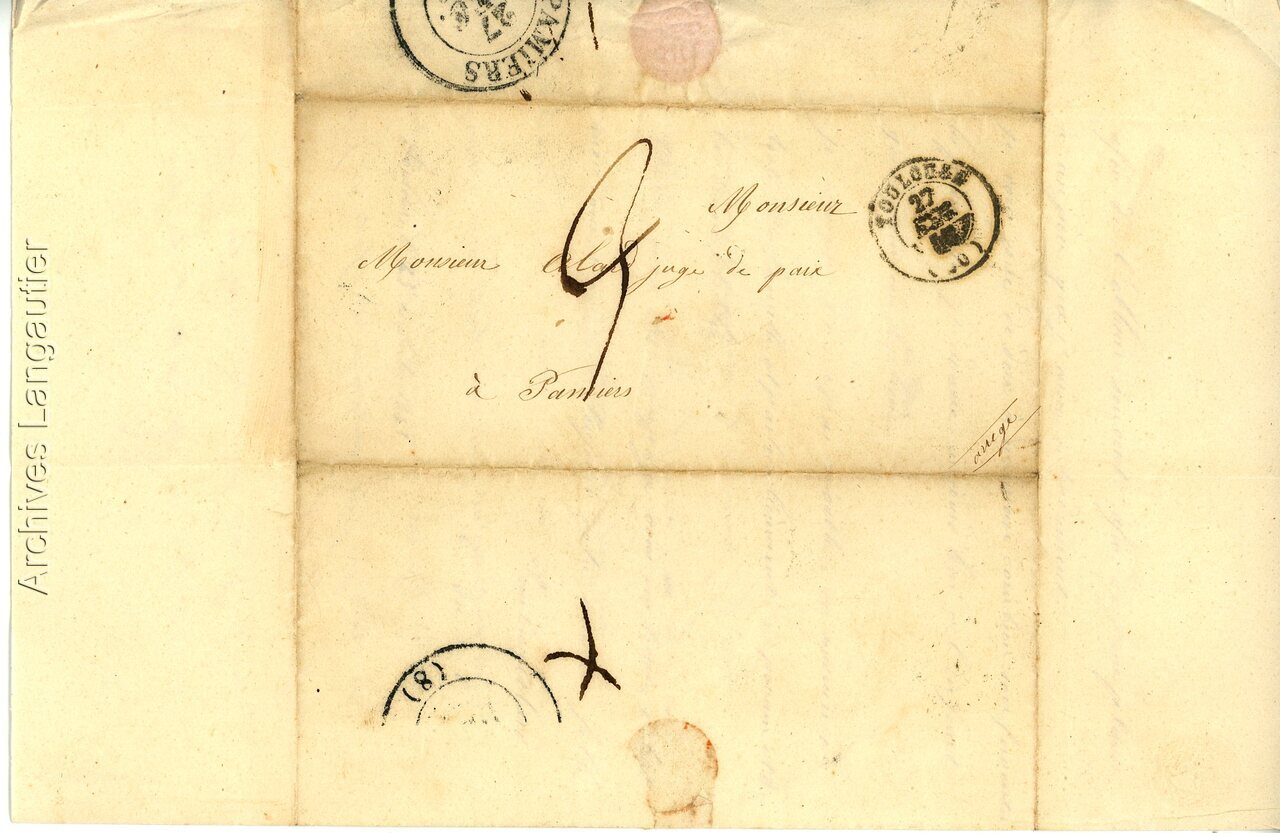 PAMIERS
27
Monsieur
Monsieur juge de paix
à Pamiers
ariege
TOULOUSE
27
(8)
Archives Langautier